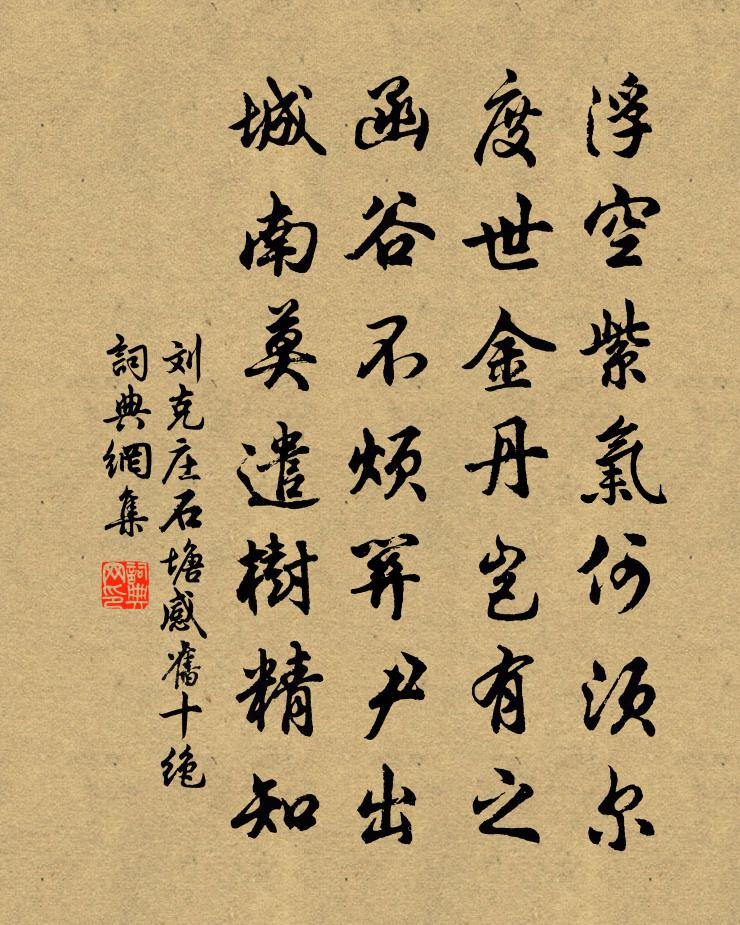 浮空紫氣何须尔
度世金丹岂有之
函谷不烦关尹出
城南莫遣樹精知
刘克庄石塘感舊十绝
詞典網集
詞典网印